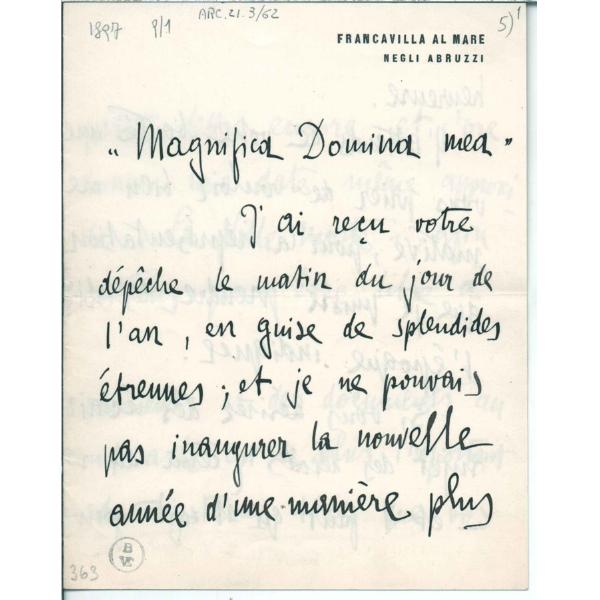 1897 9/1
ARC.21.3/62
5)1
FRANCAVILLA AL MARE
NEGLI ABRUZZI
„ Magnifica Domina mea "
J'ai reçu votre
dépêche le matin du jour de
l'an, en guise de splendides
étrennes ; et je ne pouvais
pas inaugurer la nouvelle
année d'une manière plus
363